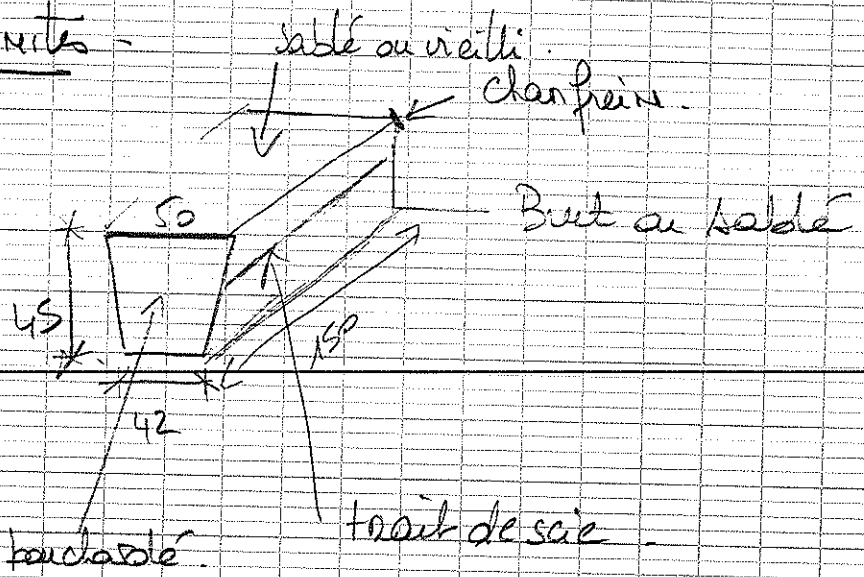 sablé ou vieilli.
chanfrein.
50
Brut ou sablé
45
150
42
trait de scie.
bouchardé.